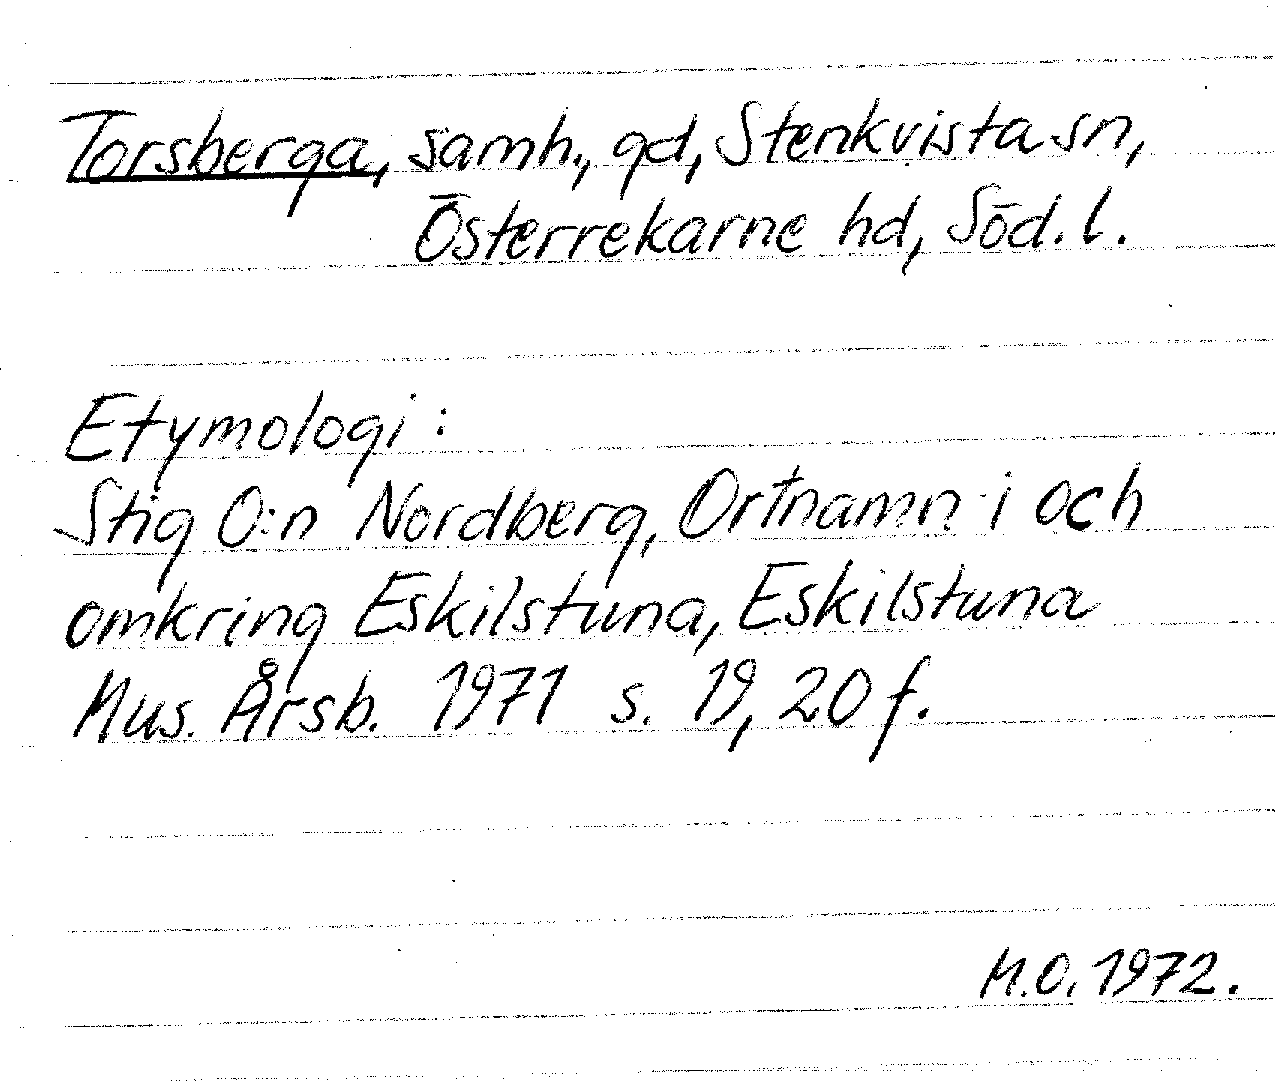 Torsberga, samh., gd, Stenkvista sn,
Österrekarne hd, Söd. l.
Etymologi:
Stig O:n Nordberg, Ortnamn i och
omkring Eskilstuna, Eskilstuna
Mus. Årsb. 1971 s. 19, 20 f.
M.O. 1972.